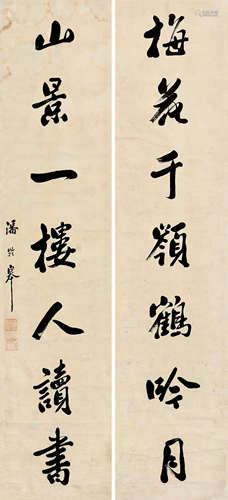 梅花千嶺鶴吟月
山景一樓人讀書
潘龄皋